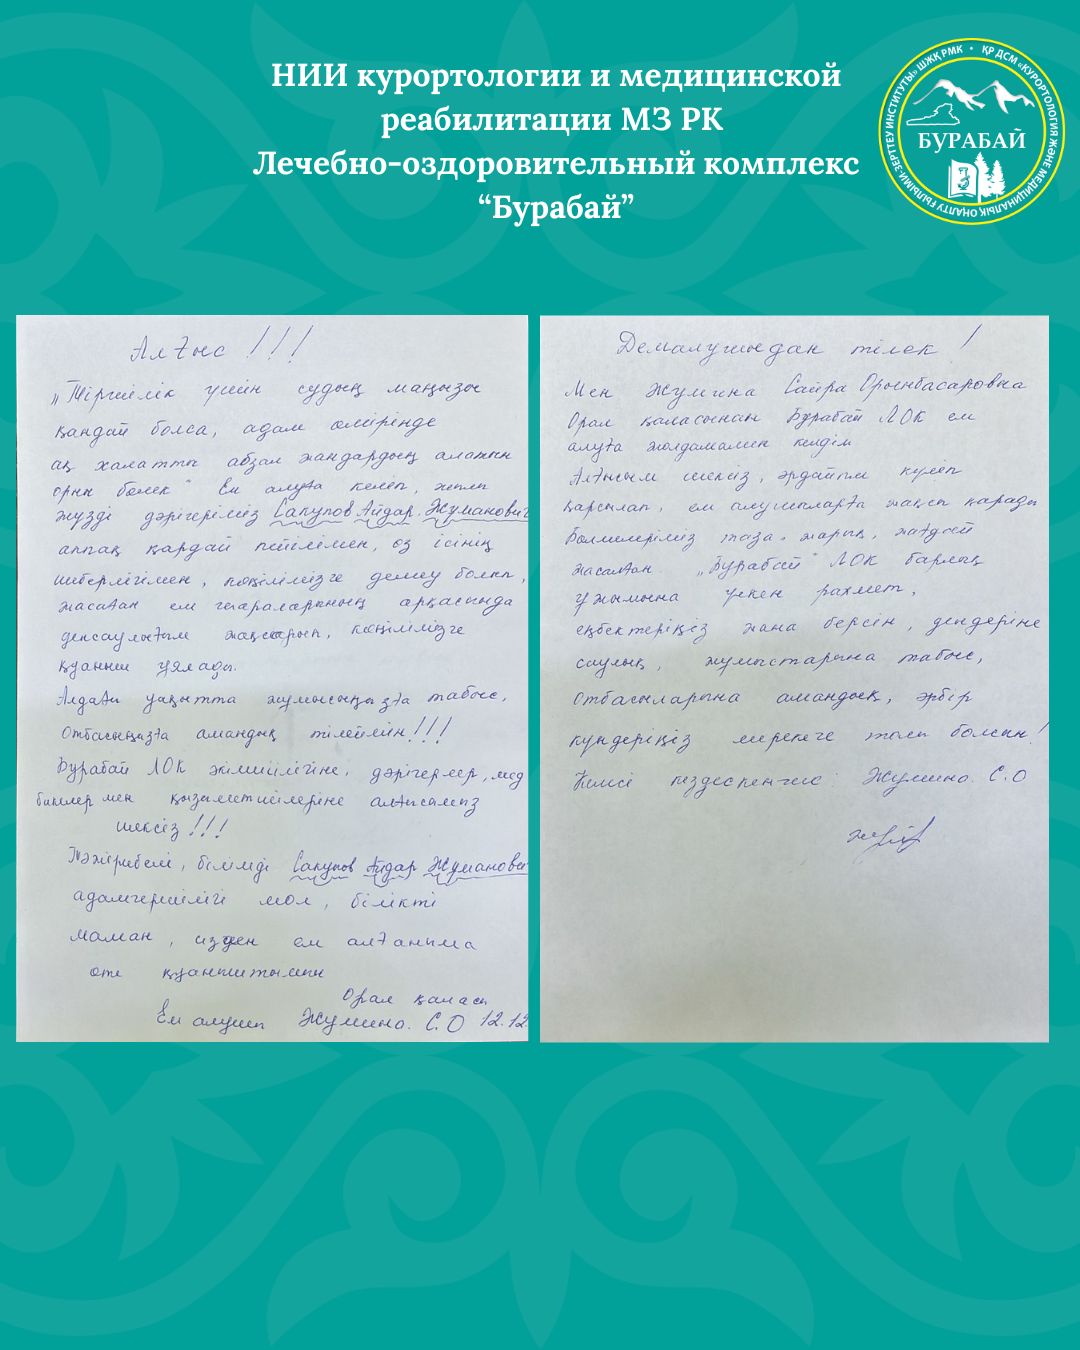 НИИ курортологии и медицинской
реабилитации МЗ РК
Лечебно-оздоровительный комплекс
“Бурабай”
ҚР ДСМ «КУРОРТОЛОГИЯ ЖӘНЕ МЕДИЦИНАЛЫҚ ОҢАЛТУ ҒЫЛЫМИ-ЗЕРТТЕУ ИНСТИТУТЫ» ШЖҚ РМК
БУРАБАЙ
Алғыс !!!
„Тіршілік үшін судың маңызы
қандай болса, адам өмірінде
ақ халатты абзал жандардың алатын
орны бөлек“ Ем алуға келіп, жылы
жүзді дәрігеріміз Сакупов Айдар Жуманович
аппақ қардай пейілімен, өз ісінің
шеберлігімен, көңілімізге демеу болып,
жасаған ем шараларының арқасында
денсаулығым жақсарып, көңілімізге
қуаныш ұялады.
Алдағы уақытта жұмысыңызға табыс,
Отбасыңызға амандық тілеймін!!!
Бурабай ЛОК әкімшілігіне, дәрігерлер, мед
бикелер мен қызметшілеріне алғысымыз
шексіз!!!
Тәжірибелі, білімді Сакупов Айдар Жуманович
адамгершілігі мол, білікті
маман, сізден ем алғаныма
өте қуаныштымын
Орал қаласы
Ем алушы Жумина. С.О 12.12.
Демалушыдан тілек !
Мен Жумина Сайра Орынбасаровна
Орал қаласынан Бурабай ЛОК ем
алуға жолдамамен келдім
Алғысым шексіз, әрдайым күліп
қарсылап, ем алушыларға жақсы қарады
Бөлмелеріміз таза, жарық, жағдай
жасалған. „Бурабай“ ЛОК барлық
ұжымына үлкен рахмет,
еңбектеріңіз жана берсін, дендеріне
саулық, жұмыстарына табыс,
Отбасыларына амандық, әрбір
күндеріңіз мерекеге толы болсын!
Келесі кездескенше: Жумина. С.О